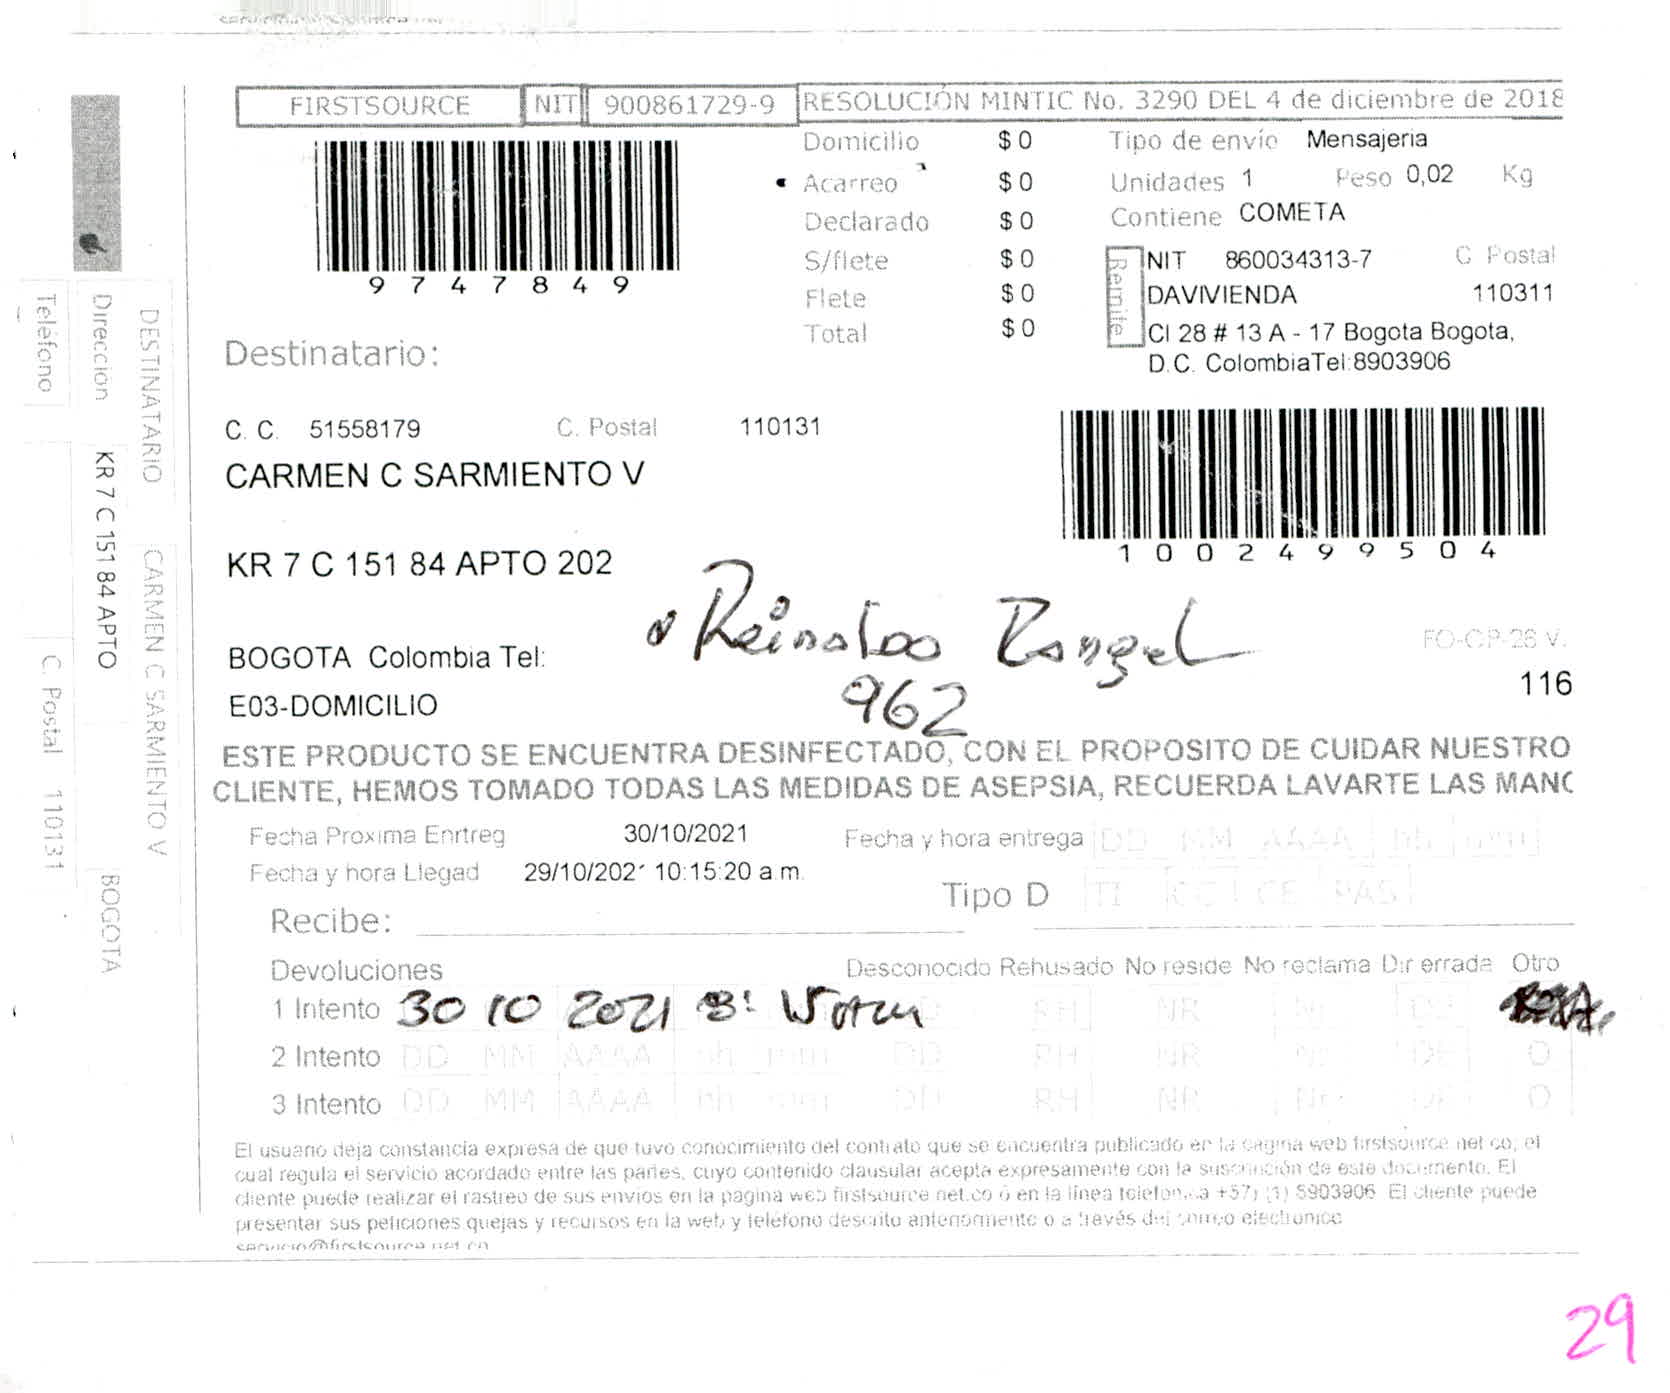 FIRSTSOURCE NIT 900861729-9 RESOLUCIÓN MINTIC No. 3290 DEL 4 de diciembre de 2018
9747849
Domicilio $ 0
Acarreo $ 0
Declarado $ 0
S/flete $ 0
Flete $ 0
Total $ 0
Tipo de envío Mensajeria
Unidades 1 Peso 0,02 Kg
Contiene COMETA
Remite
NIT 860034313-7 C Postal
DAVIVIENDA 110311
Cl 28 # 13 A - 17 Bogota Bogota,
D.C. ColombiaTel:8903906
1002499504
Destinatario:
C. C. 51558179 C. Postal 110131
CARMEN C SARMIENTO V
KR 7 C 151 84 APTO 202
Reinaldo Rangel
962
BOGOTA Colombia Tel:
E03-DOMICILIO
FO-OP-28 V.
116
ESTE PRODUCTO SE ENCUENTRA DESINFECTADO, CON EL PROPOSITO DE CUIDAR NUESTRO
CLIENTE, HEMOS TOMADO TODAS LAS MEDIDAS DE ASEPSIA, RECUERDA LAVARTE LAS MANO
Fecha Proxima Enrtreg 30/10/2021 Fecha y hora entrega DD MM AAAA hh mm
Fecha y hora Llegad 29/10/202 10:15:20 a.m.
Tipo D TI CC CE PAS
Recibe:
Devoluciones Desconocido Rehusado No reside No reclama Dir errada Otro
1 Intento 30 10 2021 RH NR
2 Intento DD MM AAAA hh mm DD RH NR Nr DE O
3 Intento DD MM AAAA hh mm DD RH NR Nr DE O
El usuario deja constancia expresa de que tuvo conocimiento del contrato que se encuentra publicado en la pagina web firstsource.net.co, el
cual regula el servicio acordado entre las partes, cuyo contenido clausular acepta expresamente con la suscripción de este documento. El
cliente puede realizar el rastreo de sus envios en la pagina web firstsource.net.co ó en la línea telefonica +57) (1) 5903906 El cliente puede
presentar sus peticiones quejas y recursos en la web y teléfono descrito anteriormente o a través del correo electronico
servicio@firstsource.net.co
DESTINATARIO CARMEN C SARMIENTO V
Dirección KR 7 C 151 84 APTO BOGOTA
Teléfono C. Postal 110131
29